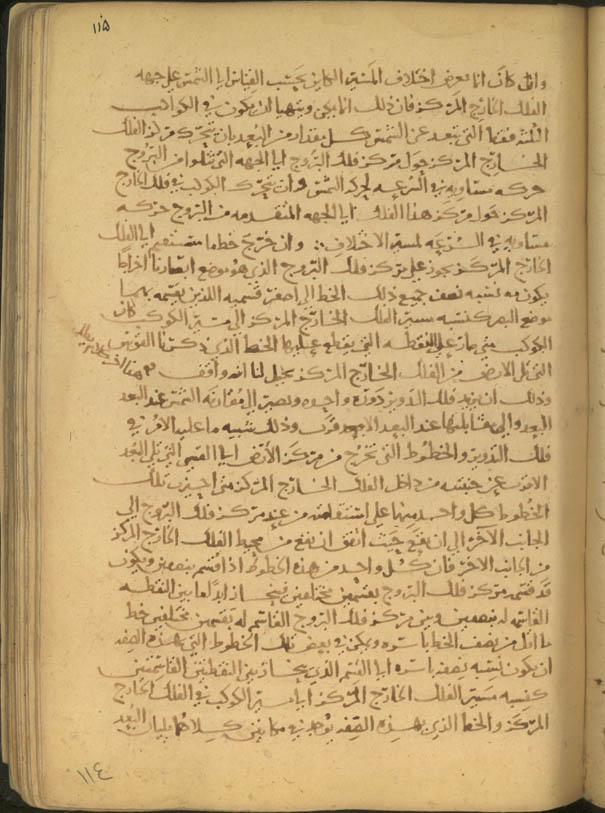 ١١٥
وان كان انا نعرض اختلاف المسير الكاين بحسب القياس الى الشمس على جهه
الفلك الخارج المركز فان ذلك انما يمكن ويتهيا ان يكون في الكواكب
الثلثه فقط التي تبعد عن الشمس كل مقدار من البعد بان يتحرك مركز الفلك
الخارج المركز حول مركز فلك البروج الى الجهه التي تتلوا من البروج
حركه مساويه في السرعه لحركه الشمس وان يتحرك الكوكب في فلك الخارج
المركز حول مركز هذا الفلك الى الجهه المتقدمه من البروج حركه
مساويه في السرعه لمسير الاختلاف وان خرج خط ما مستقيم الى الفلك
الخارج المركز يجوز على مركز فلك البروج الذي هو موضع ابصارنا اخراجا
يكون معه نسبه نصف جميع ذلك الخط الى اصغر قسميه اللذين يقسمه بهما
موضع البصر كنسبه مسير الفلك الخارج المركز الى مسير الكوكب كان
الكوكب متى مار على النقطه التي يقطع عليها الخط الذي ذكرنا القوس
التي تلي الارض من الفلك الخارج المركز يخيل لنا انه واقف
وذلك ان يزيد فلك التدوير دوره واحده ويصير الى مقارنه الشمس عند البعد
البعد والى مقابلتها عند البعد الاقرب وذلك شبيه ما عليه الامر في
فلك التدوير والخطوط التي تخرج من مركز الارض الى القسي التي تلي البعد
الاقرب عن جنبتيه من داخل الفلك الخارج المركز متى اخرجت تلك
الخطوط كل واحد منها على استقامته من عند مركز فلك البروج الى
الجانب الاخر الى ان يقع حيث اتفق ان يقع من محيط الفلك الخارج المركز
من الجانب الاخر فان كل واحد من هذه الخطوط اذا قسم بنصفين ويكون
قد قسمه مركز فلك البروج بقسمين مختلفين فينحاز ابدا ما بين النقطه
القاسمه له بنصفين وبين مركز فلك البروج القاسم له بقسمين مختلفين خط
ما اقل من نصف الخط باسره ويمكن في بعض تلك الخطوط التي بهذه الصفه
ان يكون نسبه نصفه باسره الى القسم الذي ينحاز بين النقطتين القاسمتين
كنسبه مسير الفلك الخارج المركز الى مسير الكوكب في الفلك الخارج
المركز والخط الذي بهذه الصفه يوجد في مكانين كلاهما يليان البعد
١١٤